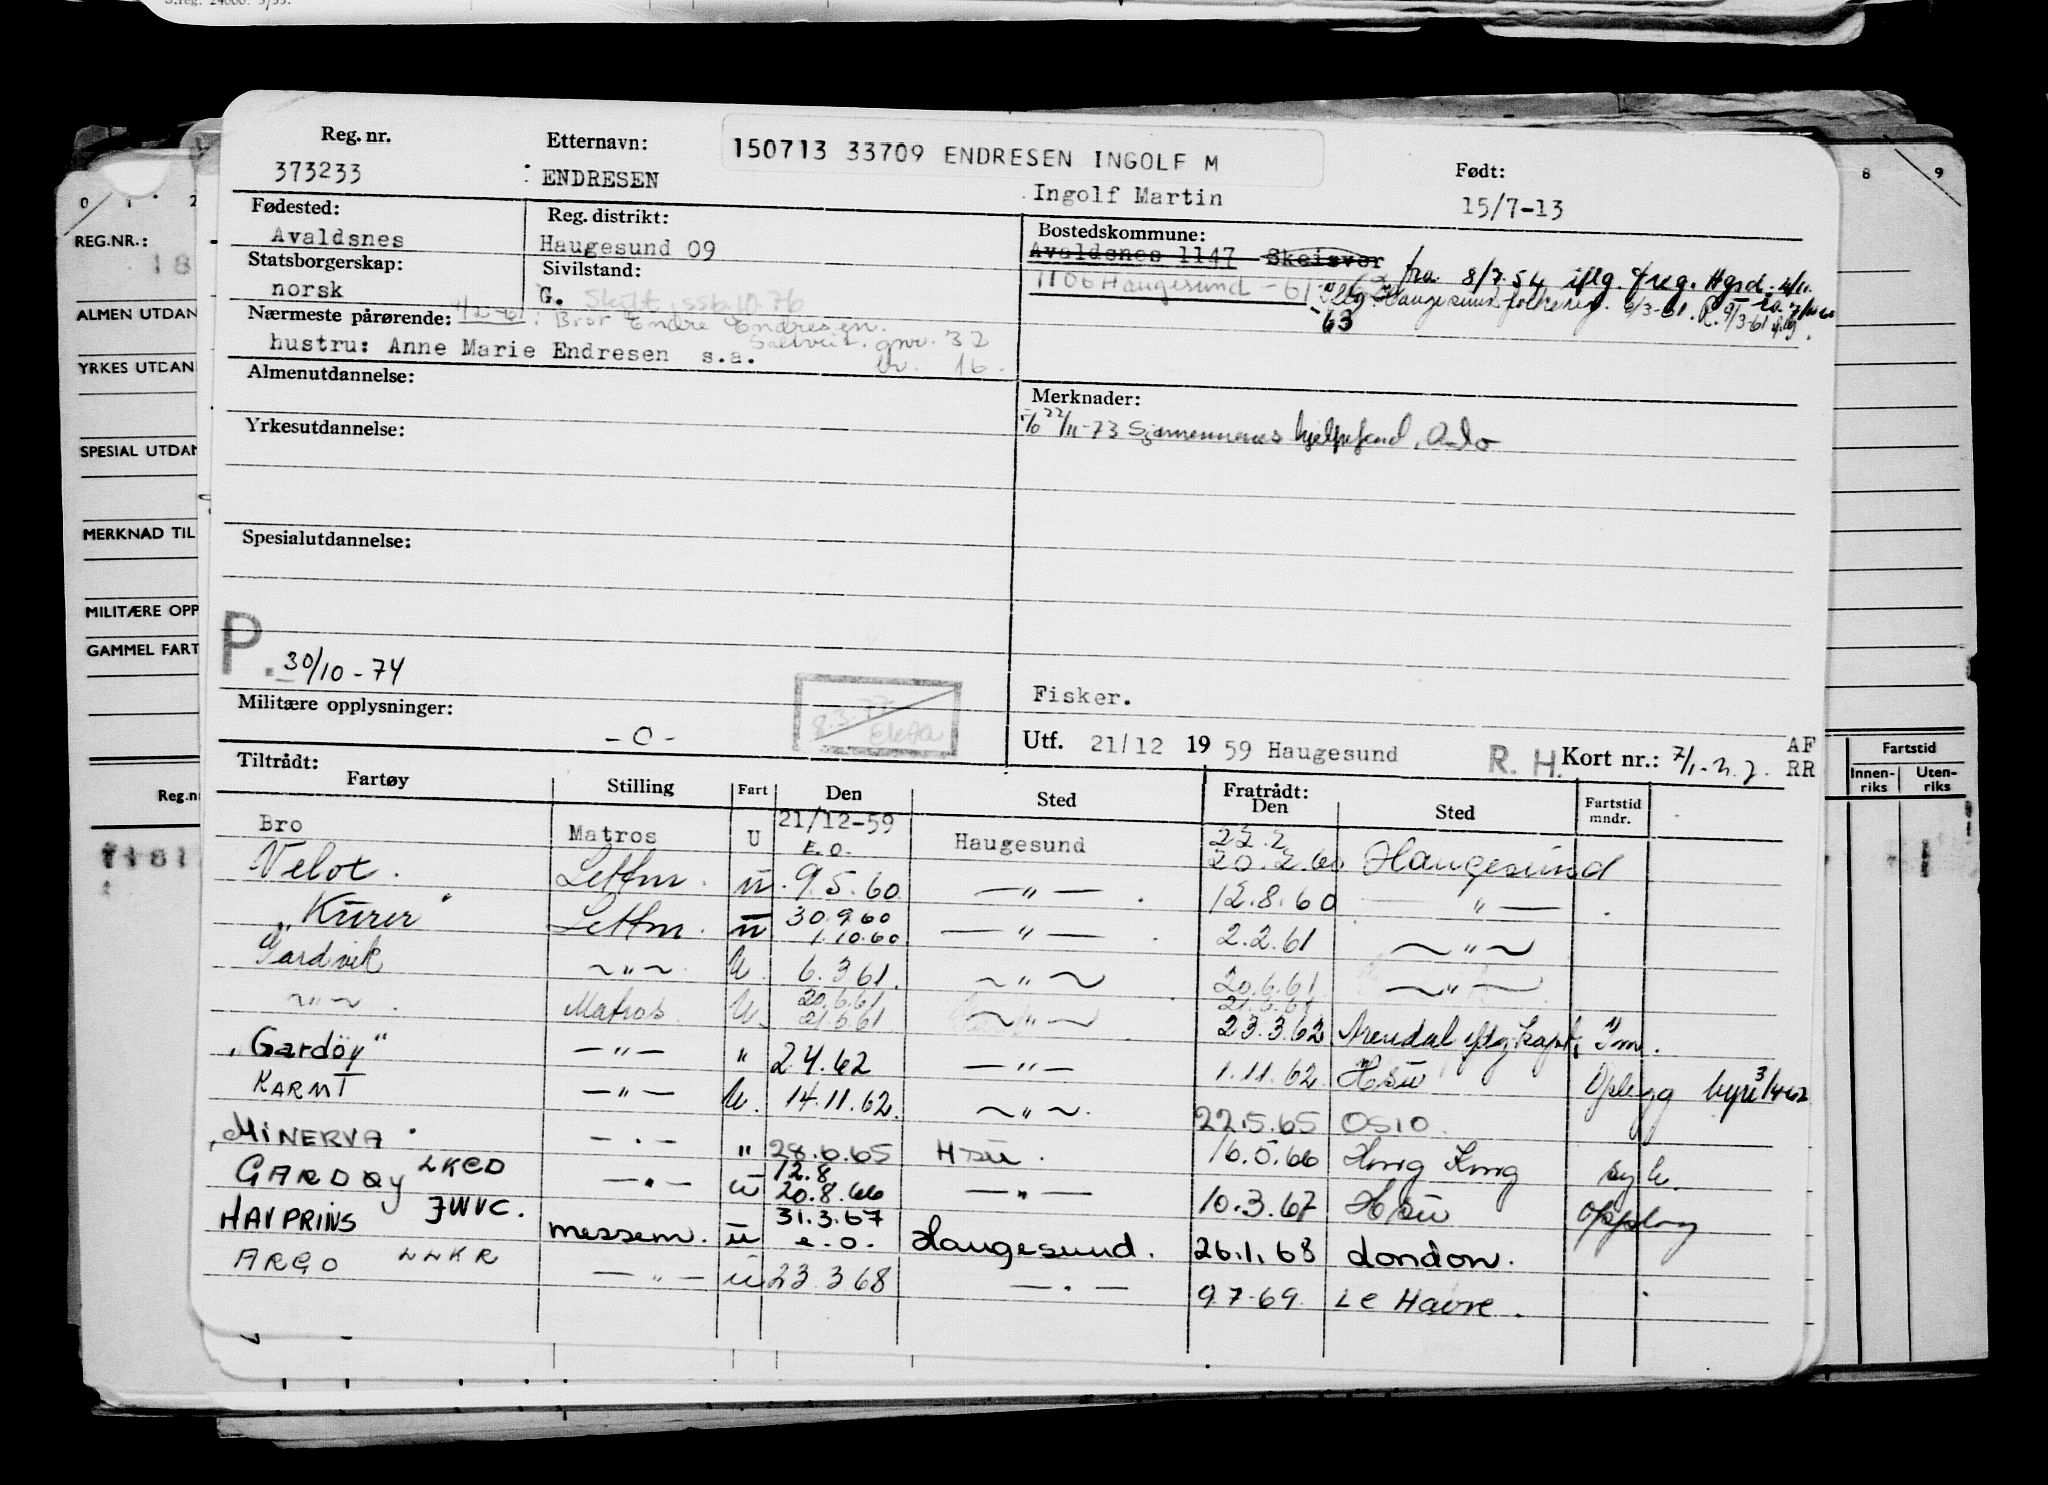 S.reg. 24000. 3/55.
0 1 2
8 9
REG.NR.:
18
ALMEN UTDAN
YRKES UTDAN
SPESIAL UTDAN
MERKNAD TIL
MILITÆRE OPP
GAMMEL FART
Reg.nr
Fartstid
Innen-riks Uten-riks
Reg. nr. Etternavn: 150713 33709 ENDRESEN INGOLF M Født:
373233 : ENDRESEN Ingolf Martin 15/7-13
Fødested: Reg. distrikt: Bostedskommune:
Avaldsnes Haugesund 09 Avaldsnes 1147 Skeisvor fra 8/7.54 iflg. freg. Hgsd.
Statsborgerskap: Sivilstand: 1106 Haugesund -61
norsk G. Skilt 76 Haugesund folkereg. 6/3-61.
63
Nærmeste pårørende: 9/2-61: Bror Endre Endresen.
gnr. 32
hustru: Anne Marie Endresen s.a. br. 16.
Almenutdannelse: Merknader:
22/11-73 Sjømennenes hjelpefond, Oslo
Yrkesutdannelse:
Spesialutdannelse:
P. 30/10-74
8.3.77
Fisker.
Militære opplysninger:
-0-
Utf. 21/12 1959 Haugesund R. H. Kort nr.: 7/1. AF
RR
Tiltrådt: Fratrådt:
Fartøy Stilling Fart Den Sted Den Sted Fartstid mndr.
Bro Matros U 21/12-59 E.O. Haugesund 22.2 20.2.60 Haugesund
Velox. Lettm. u. 9.5.60 —"— 12.8.60 —"—
"Kurer" Lettm. u 30.9.60 1.10.60 —"— 2.2.61 ~"~
Gardvik ~"~ U. 6.3.61. ~"~ 20.6.61 ~"~
~"~ Matros U. 20.6.61 21.6.61 ~"~ 23.3.62 Arendal iflg. kapt.
"Gardöy" —"— " 2.4.62 —"— 1.11.62. Hsu Oplegg hyre 3/4-62
KARMT —"— U. 14.11.62. ~"~ 22.5.65 OSlO
"MiNERVA" —"— " 28.6.65 Hsu. 16.5.66 Hong Kong syk.
GARDØY LKCD —"— u 12.8 20.8.66 —"— 10.3.67 Hsu Opplag
HAVPRINS JWVC. messem. u 31.3.67 e.o. Haugesund. 26.1.68 London.
ARGO LLKR —"— u 23.3.68 —"— 9.7.69 Le Havre.